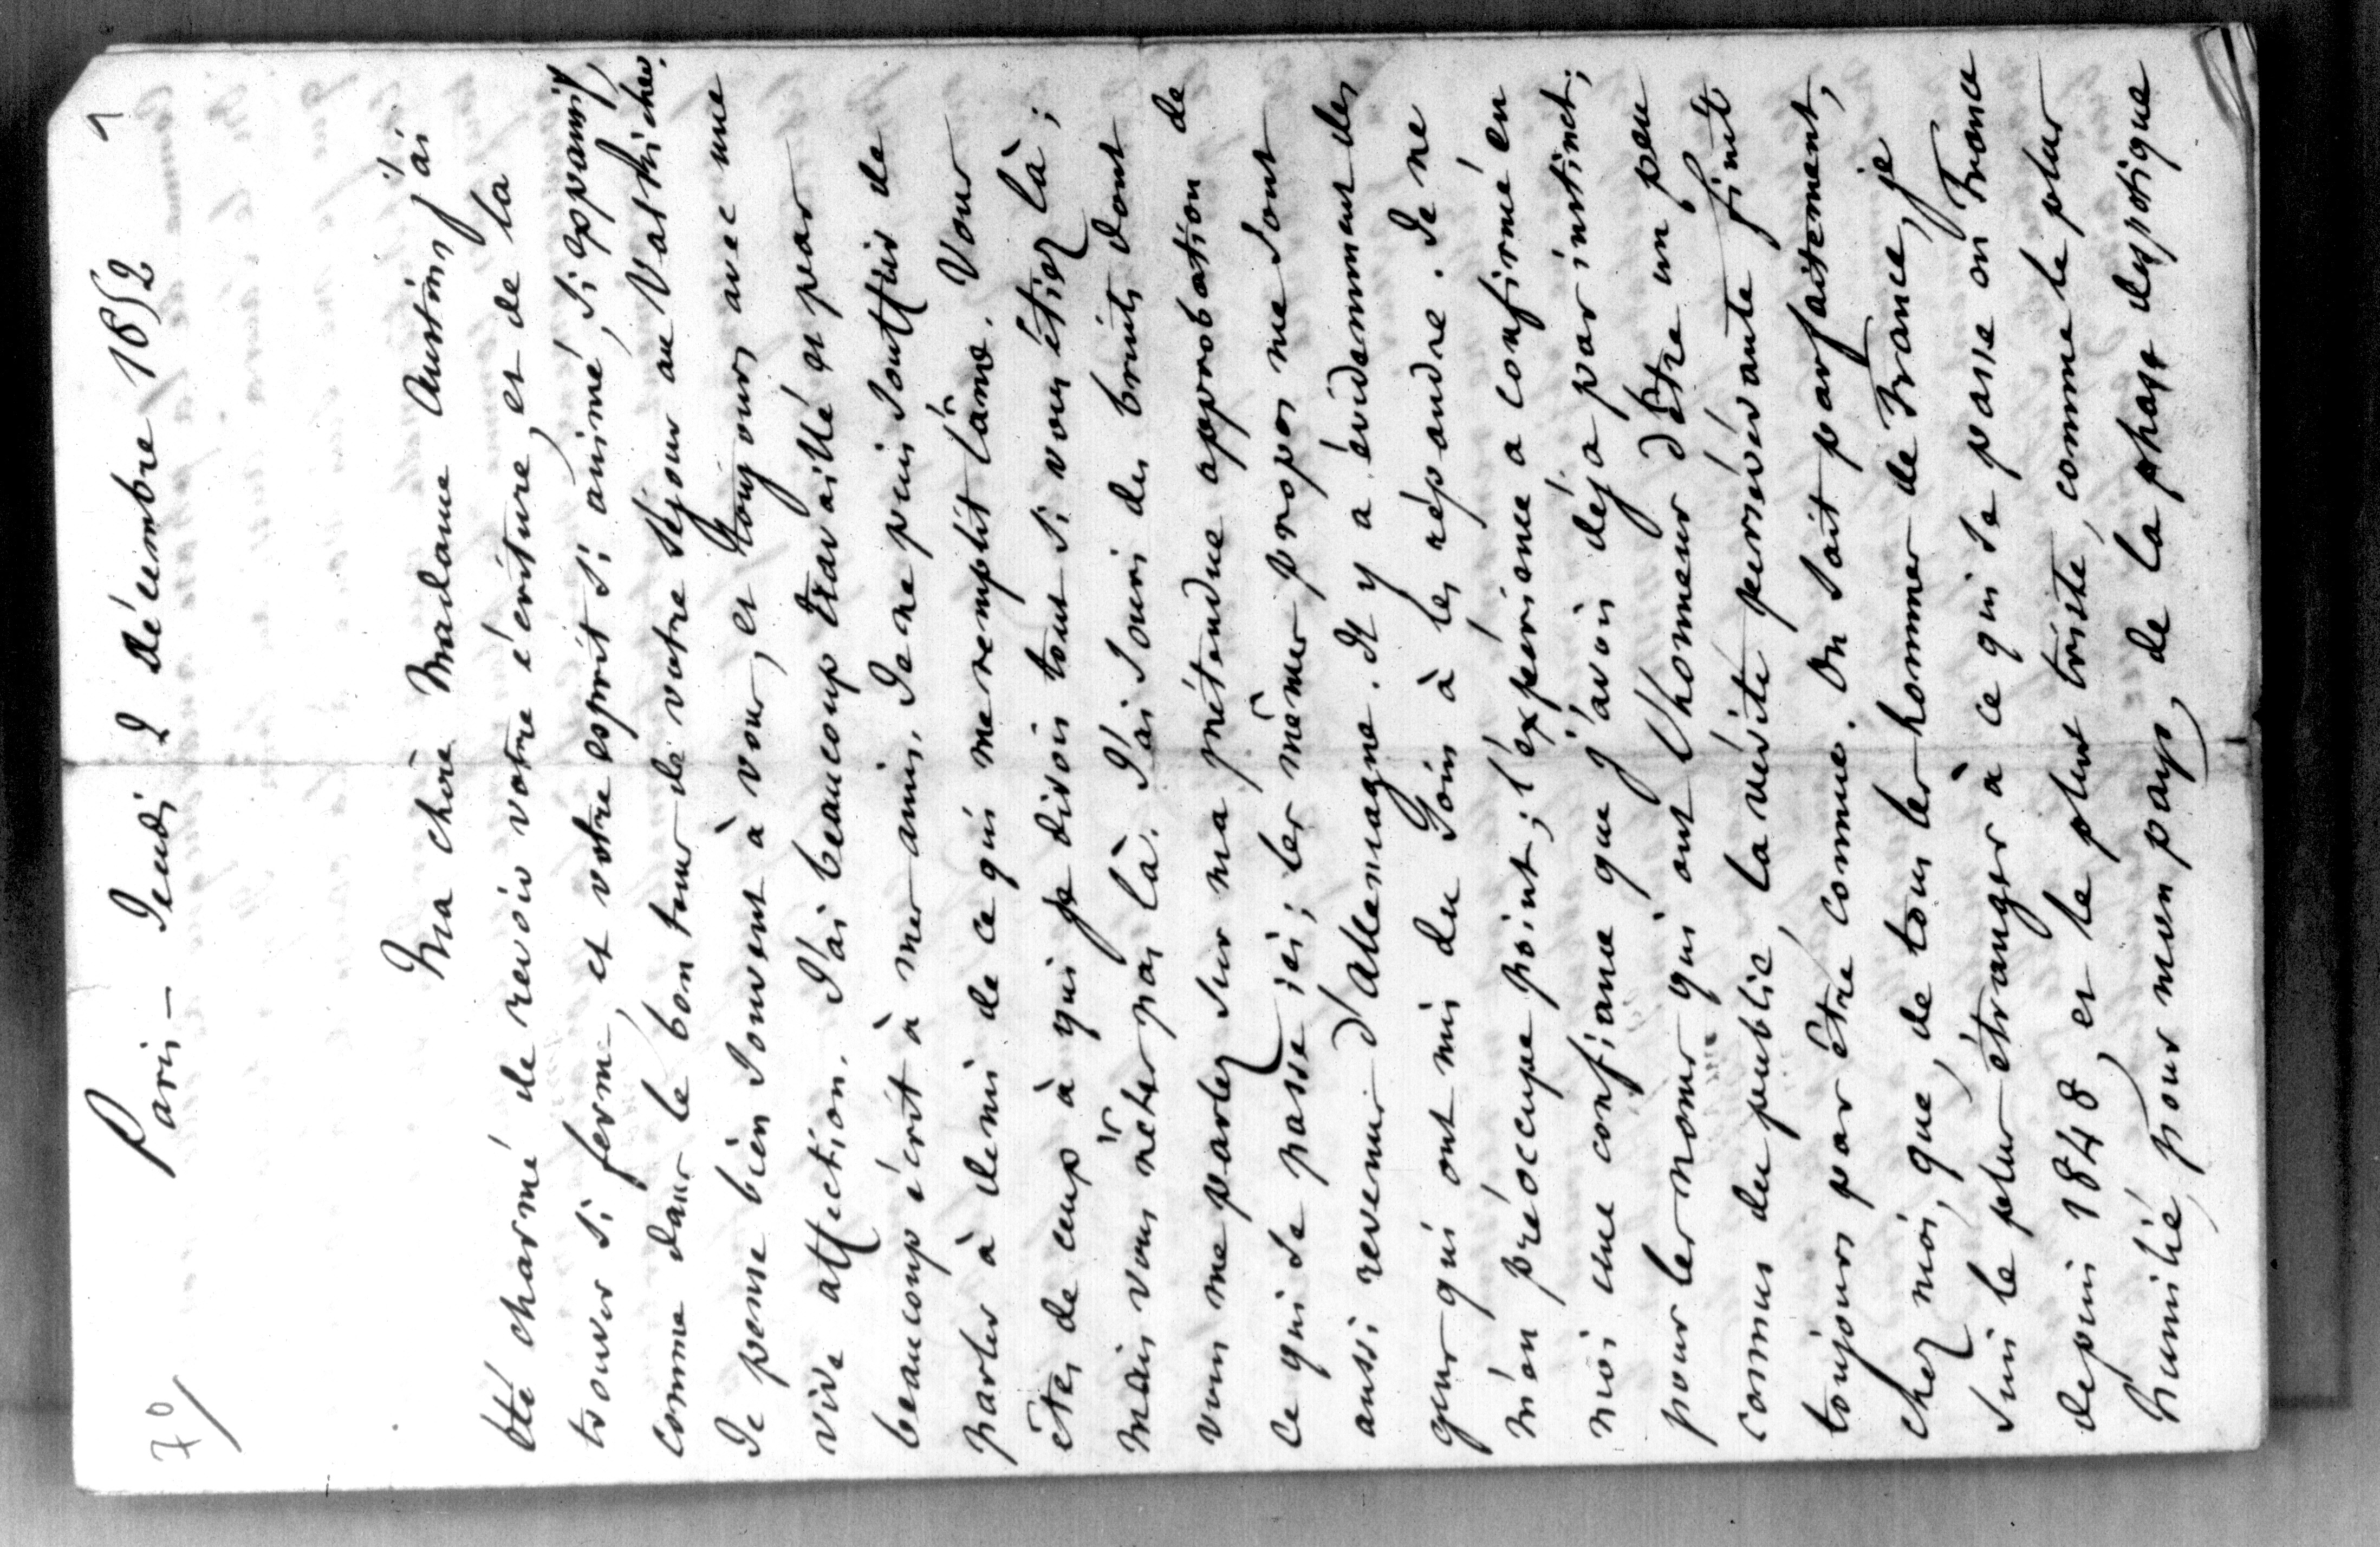 70/
1
Paris – Jeudi 2 décembre 1852
Ma chère Madame Austin, j'ai
été charmé de revoir votre écriture, et de la
trouver si ferme, et votre esprit si animé, si épanoui,
comme dans le bon temps de votre séjour au Val Richer.
Je pense bien souvent à vous, et toujours avec une
vive affection. J'ai beaucoup travaillé et peu
beaucoup écrit à mes amis. Je ne puis souffrir de
parler à demi de ce qui me remplit l'âme. Vous
êtes de ceux à qui je dirais tout si vous étiez là;
mais vous n'êtes pas là. J'ai souri des bruits dont
vous me parlez sur ma prétendue approbation de
ce qui se passe ici; les mêmes propos me sont
aussi revenus d'Allemagne. Il y a évidemment des
gens qui ont mis du soin à les répandre. Je ne
m'en préoccupe point; l'expérience a confirmé en
moi une confiance que j'avais déjà par instinct;
pour les noms qui ont l'honneur d'être un peu
connus du public, la vérité persévérante finit
toujours par être connue. On sait parfaitement,
chez moi, que, de tous les hommes de France, je
suis le plus étranger à ce qui se passe en France
depuis 1848, et le plus triste, comme le plus
humilié, pour mon pays, de la phase despotique